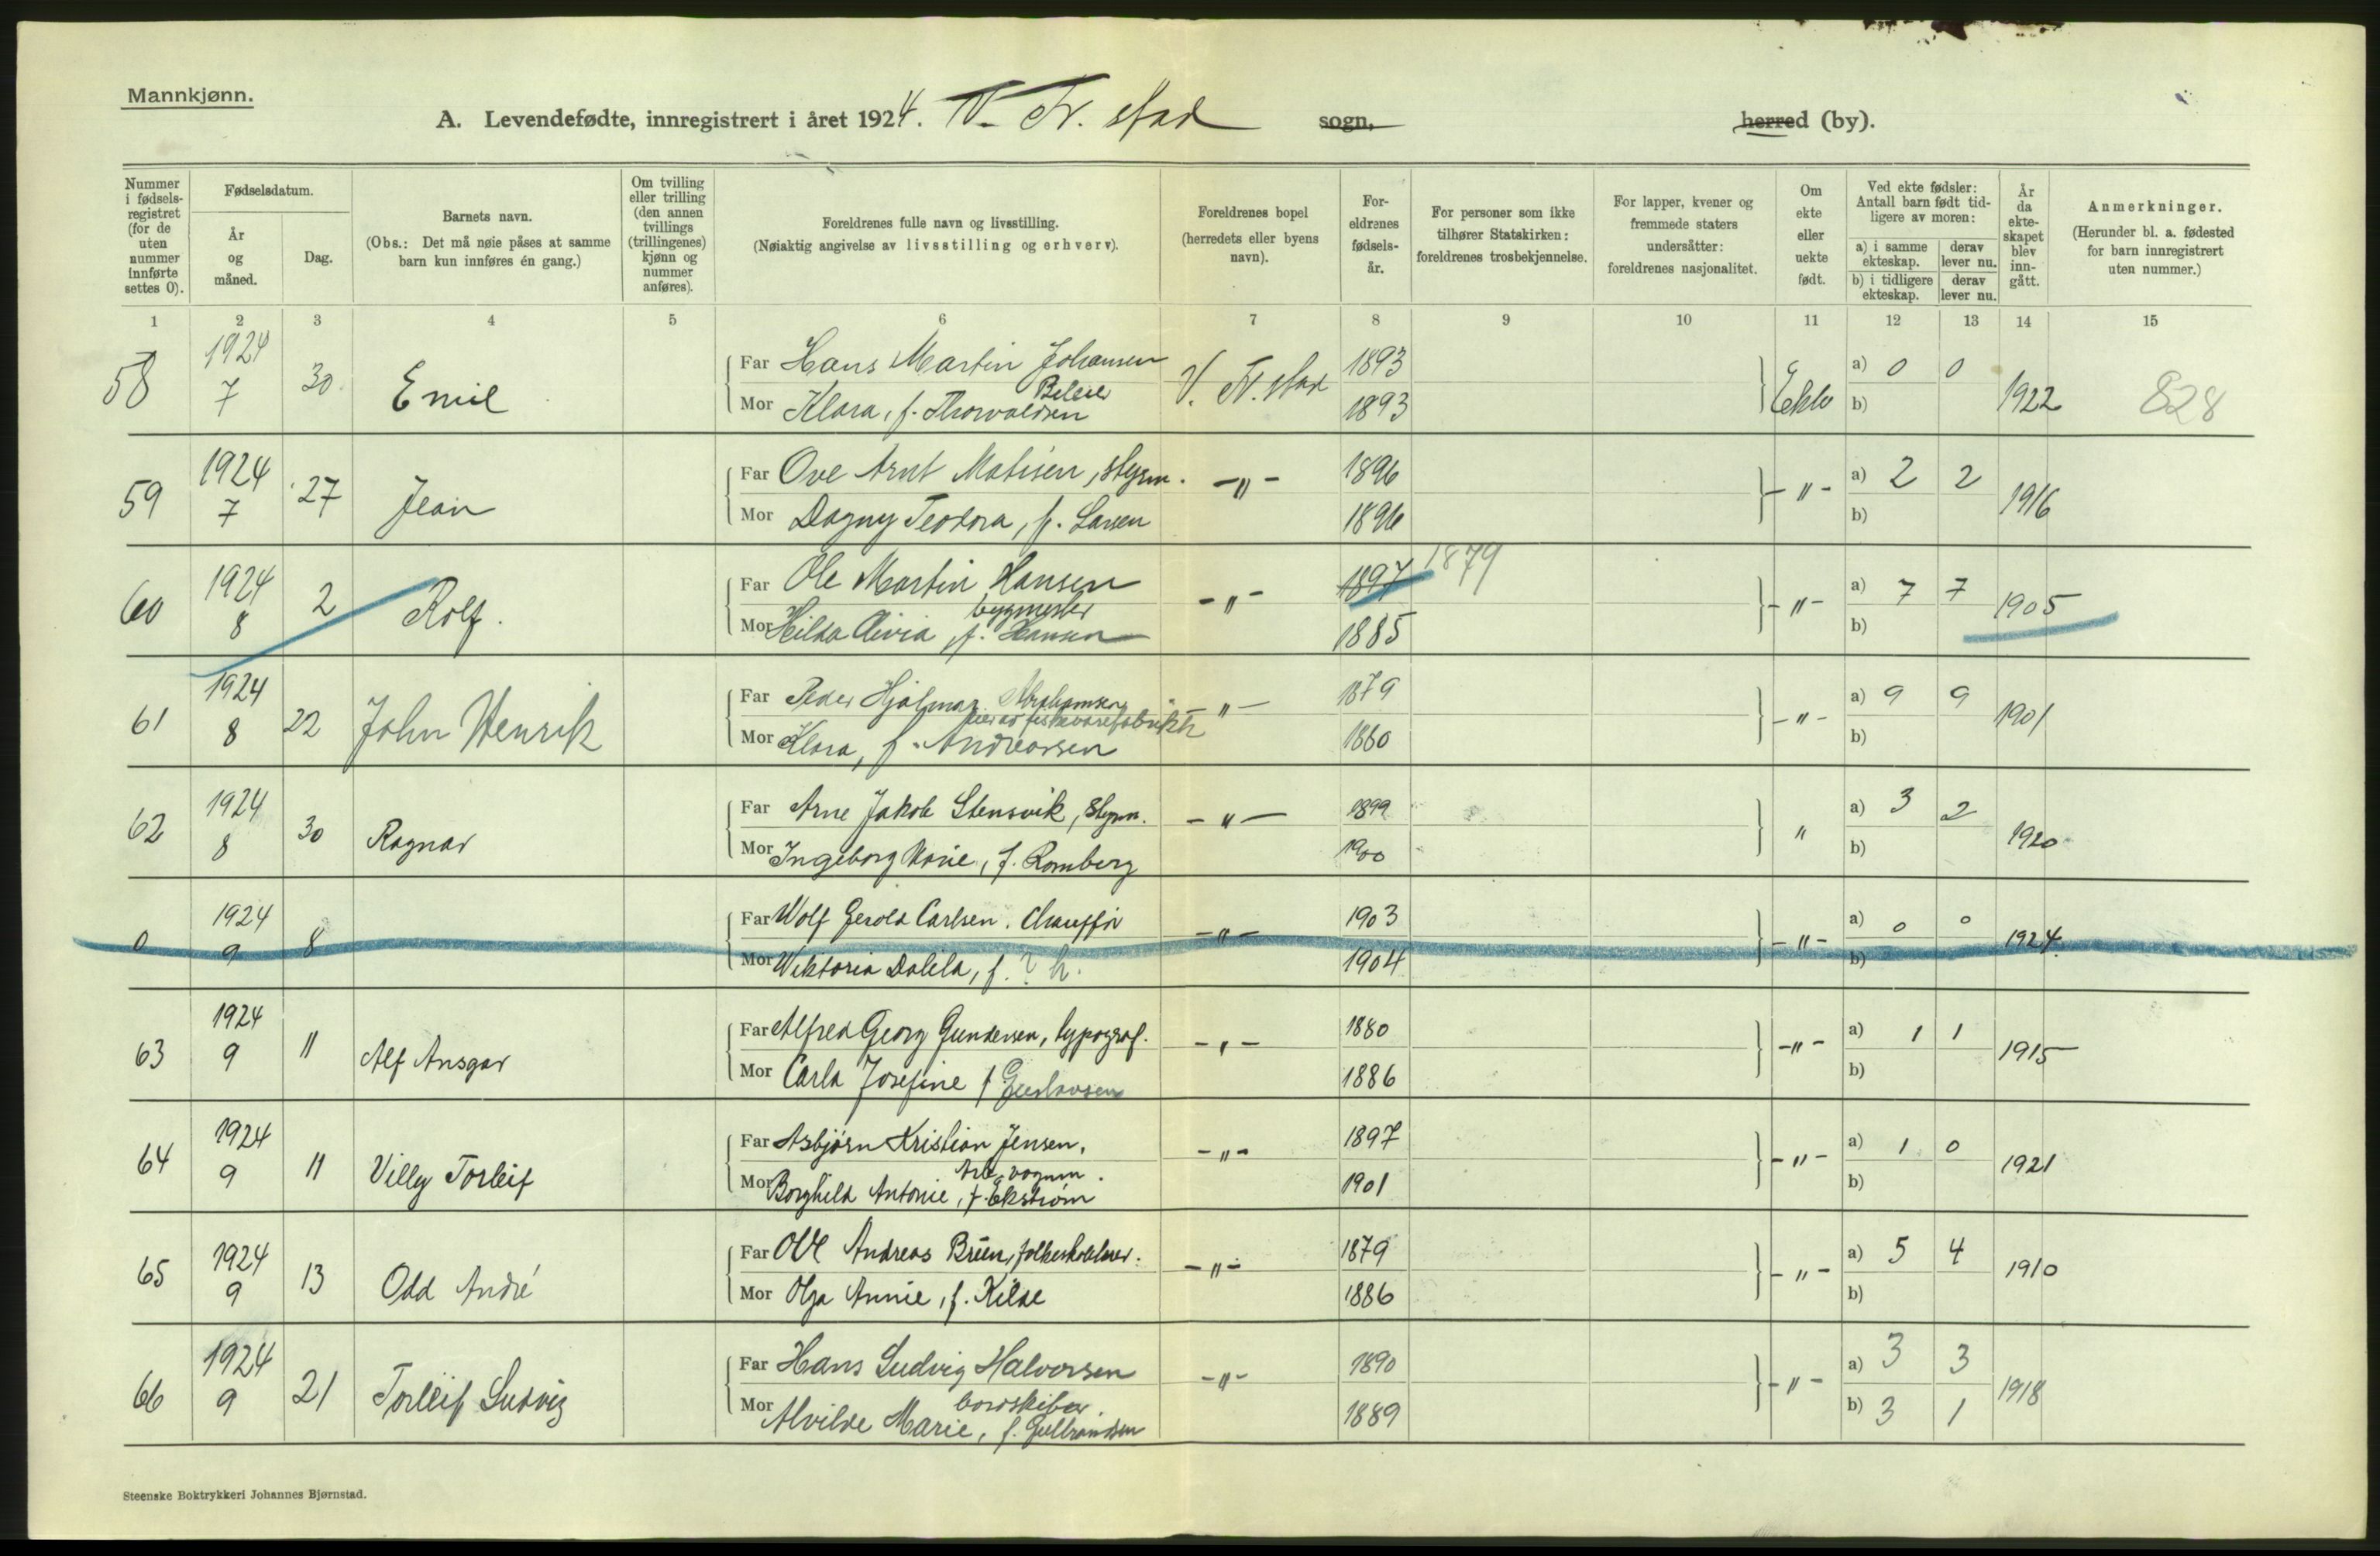 Mannkjønn.
A. Levendefødte, innregistrert i året 1924. V. Fr. stad sogn, herred (by).
Nummer i fødselsregistret (for de uten nummer innførte settes 0).
Fødselsdatum.
År og måned.
Dag.
Barnets navn.
(Obs.: Det må nøie påses at samme barn kun innføres én gang.)
Om tvilling eller trilling (den annen tvillings (trillingenes) kjønn og nummer anføres).
Foreldrenes fulle navn og livsstilling.
(Nøiaktig angivelse av livsstilling og erhverv).
Foreldrenes bopel (herredets eller byens navn).
Foreldrenes fødselsår.
For personer som ikke tilhører Statskirken: foreldrenes trosbekjennelse.
For lapper, kvener og fremmede staters undersåtter: foreldrenes nasjonalitet.
Om ekte eller uekte født.
Ved ekte fødsler: Antall barn født tidligere av moren:
a) i samme ekteskap. derav lever nu.
b) i tidligere ekteskap. derav lever nu.
År da ekteskapet blev inngått.
Anmerkninger.
(Herunder bl. a. fødested for barn innregistrert uten nummer.)
1 2 3 4 5 6 7 8 9 10 11 12 13 14 15
58 1924 7 30 Emil Far Hans Martin Johansen V. Fr. stad 1893 Ekte a) 0 0 1922 828
Mor Klara, f. Thorvaldsen 1893 b)
59 1924 7 27 Jean Far Ove Arnt Matisen, styrm. -"- 1896 -"- a) 2 2 1916
Mor Dagny Teodora, f. Larsen 1896 b)
60 1924 8 2 Rolf. Far Ole Martin Hansen -"- 1897 1879 -"- a) 7 7 1905
bygmester
Mor Hilda Livia, f. Hansen 1885 b)
61 1924 8 22 John Henrik Far Peder Hjalmar Abrahamsen -"- 1879 -"- a) 9 9 1901
Mor Klara, f. Andreassen 1880 b)
62 1924 8 30 Ragnar Far Arne Jakob Stensvik, Styrm. -"- 1899 " a) 3 2 1920
Mor Ingeborg Marie, f. Romberg 1900 b)
0 1924 9 8 Far Wolf Gerold Carlsen. Chauffør -"- 1903 -"- a) 0 0 1924.
Mor Viktoria Dalila, f. ? h. 1904 b)
63 1924 9 11 Alf Ansgar Far Alfred Georg Gundersen, typograf. -"- 1880 -"- a) 1 1 1915
Mor Carla Josefine f Gustavsen 1886 b)
64 1924 9 11 Villy Torleif Far Asbjørn Kristian Jensen, -"- 1897 -"- a) 1 0 1921
Mor Borghild Antonie, f. Ekstrøm 1901 b)
65 1924 9 13 Odd André Far Ole Andreas Brien, folkeskolelærer. -"- 1879 -"- a) 5 4 1910
Mor Olga Annie, f. Kilde 1886 b)
66 1924 9 21 Torleif Ludvig Far Hans Ludvig Halvorsen -"- 1890 -"- a) 3 3 1918
Mor Alvilde Marie, f. Gulbrandsen 1889 b) 3 1
Steenske Boktrykkeri Johannes Bjørnstad.